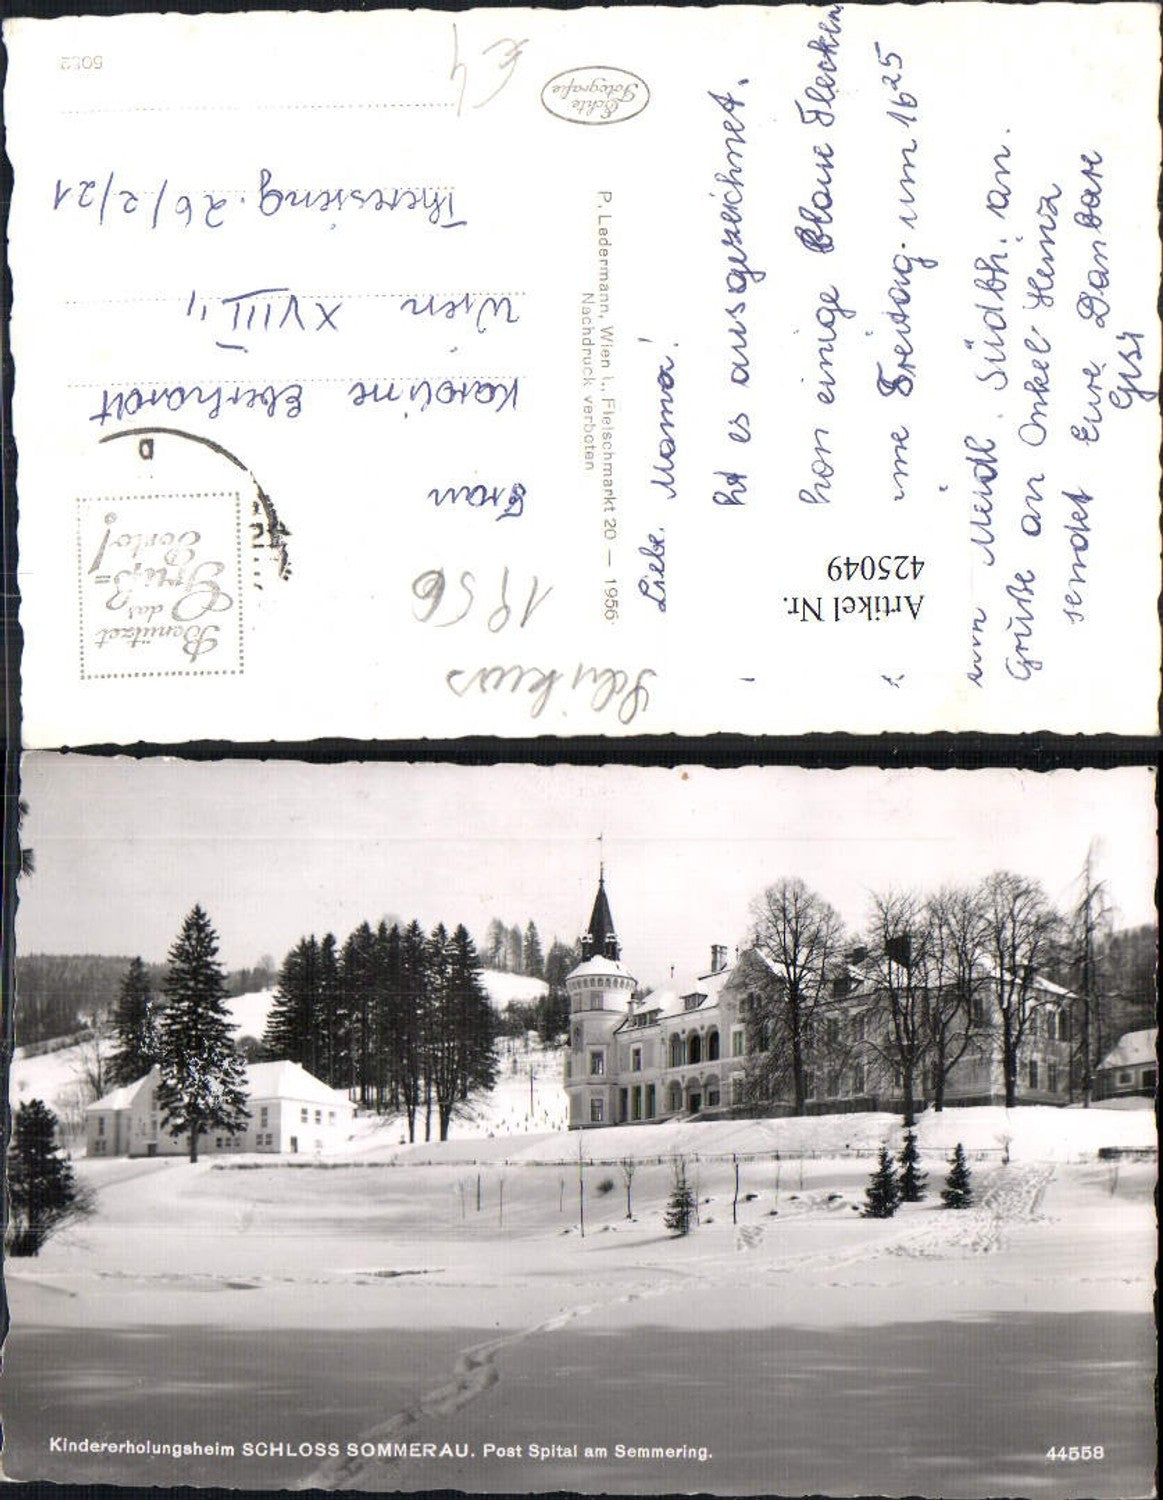 Liebe Mama!
ht es ausgezeichnet.
hon einige Blaue Flecken
me Freitag um 16 25
Meidl. Südbh. an.
Grüße an Onkel Heinz
sendet Eure Dankbare
P. Ledermann, Wien I., Fleischmarkt 20 — 1956
Nachdruck verboten
Echte
Fotografie
Benützet
das
Gruß=
Porto!
a
1956
€4
Frau
Karoline Eberhardt
Wien XVIII
Theresieng. 26/2/21
5032
Artikel Nr.
425049
Kindererholungsheim SCHLOSS SOMMERAU. Post Spital am Semmering.
44558